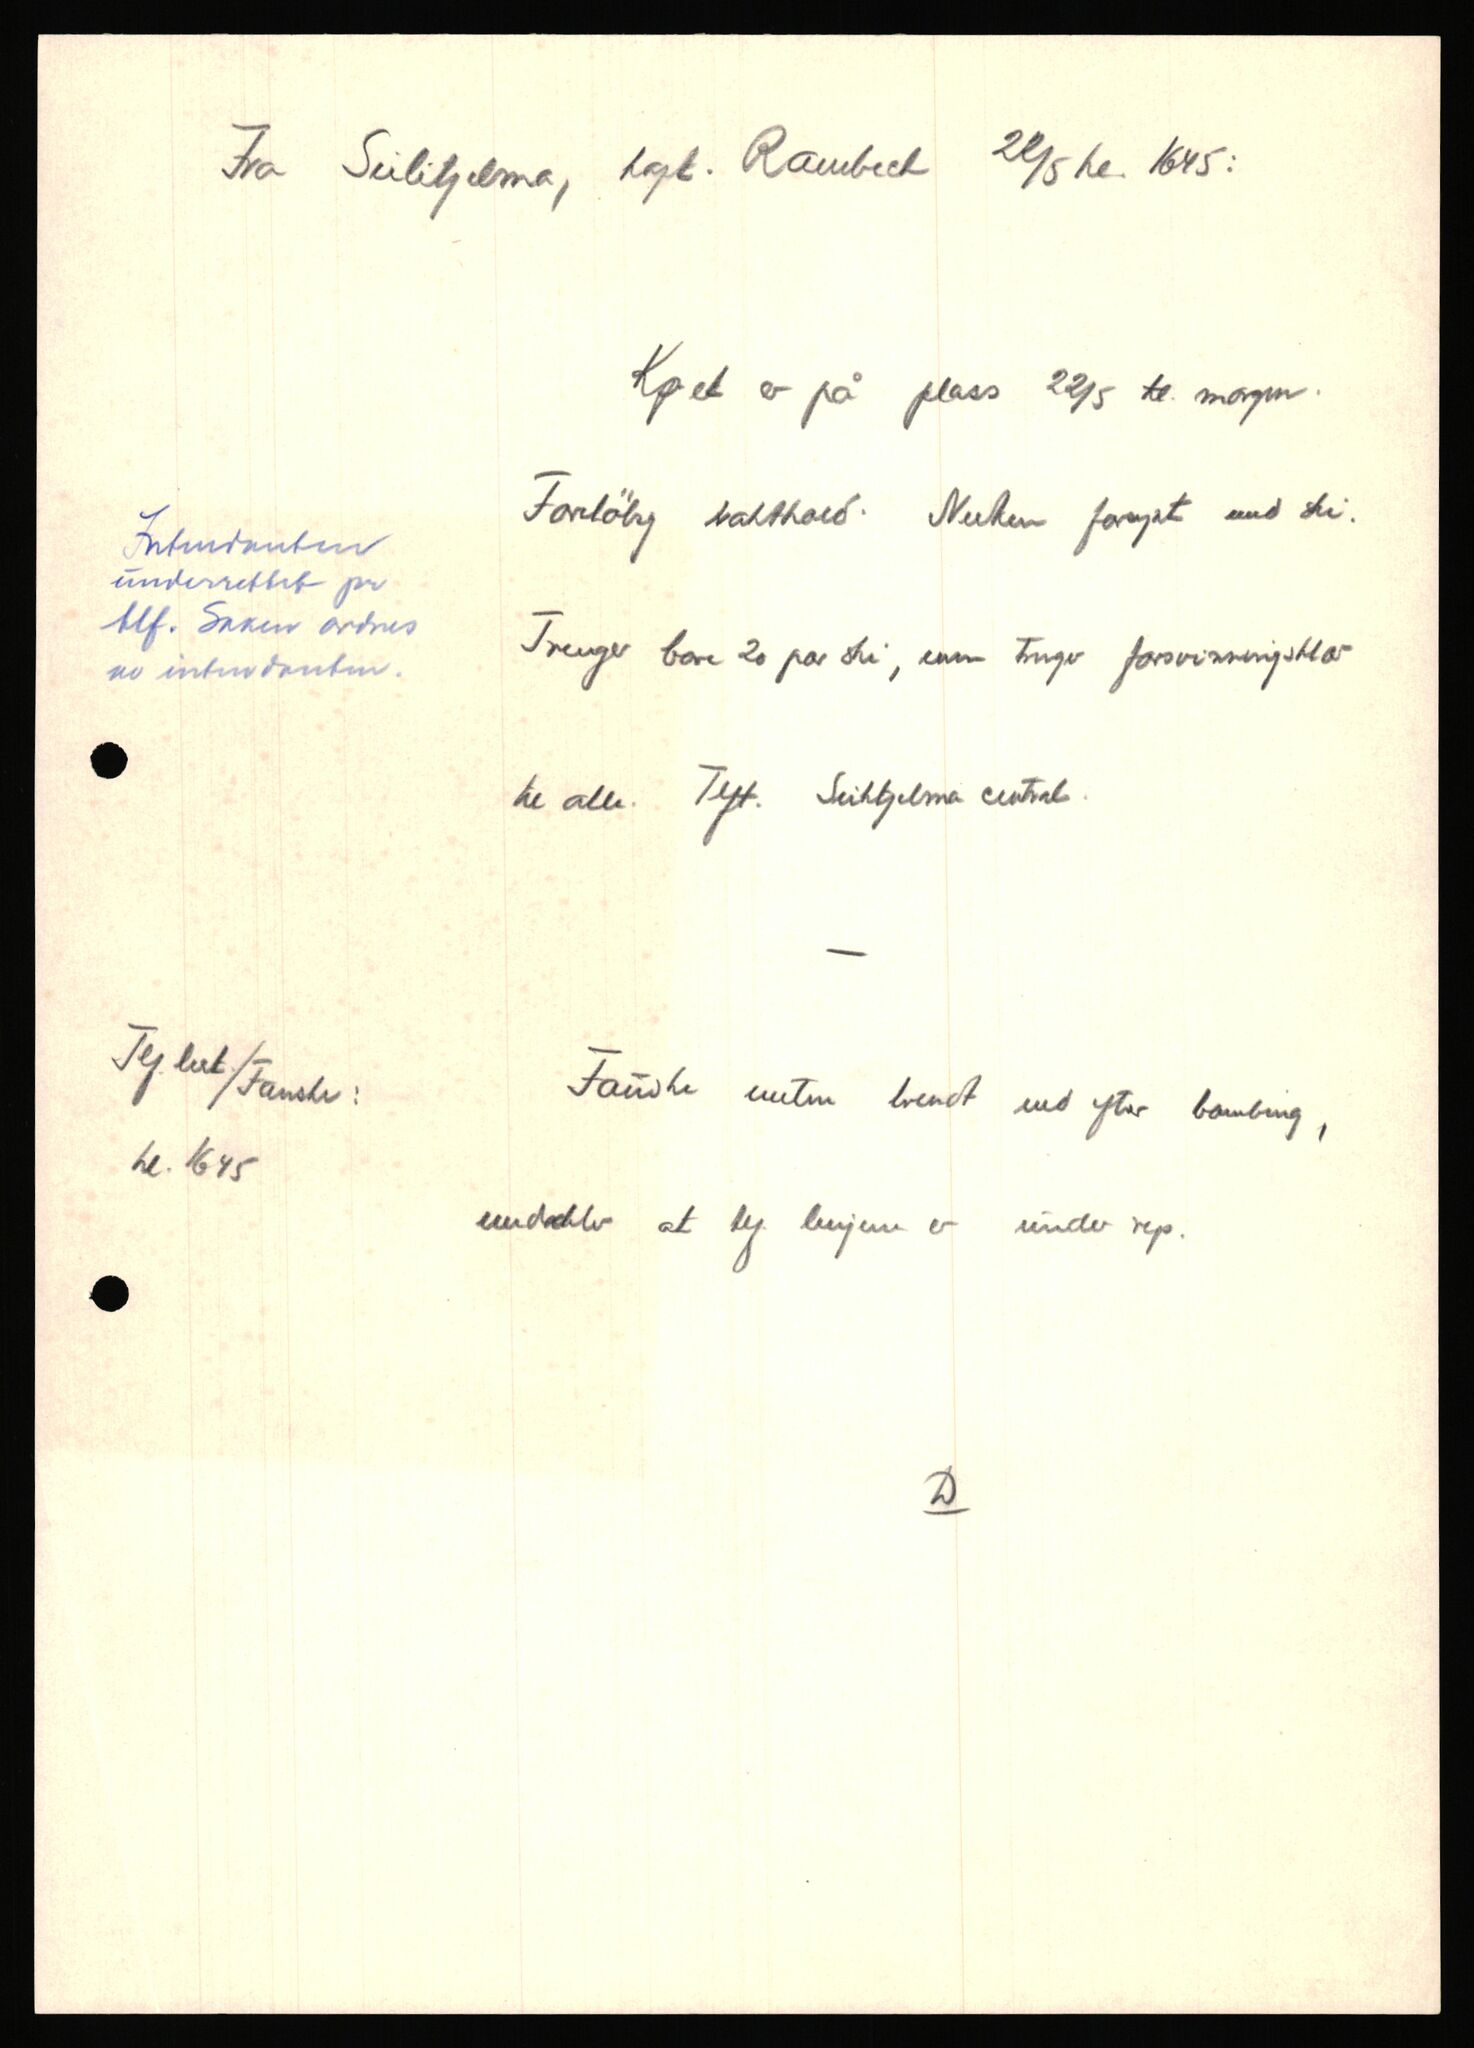 Fra Sulitjelma, kapt. Rambech 22/5 kl. 1645:
Kp et er på plass 22/5 kl. morgen.
Foreløbig vakthold. Neden forsynt med ski.
Trenger bare 20 par ski, men truger forsvinningsklær
til alle. Tlf. Sulitjelma central.
Intendanten
underrettet pr
tlf. Saken ordnes
av intendanten.
—
Tlf. best./Fauske:
kl. 1645
Fauske nesten brendt ned efter bombing,
meddeler at tlf. linjene er under rep.
D